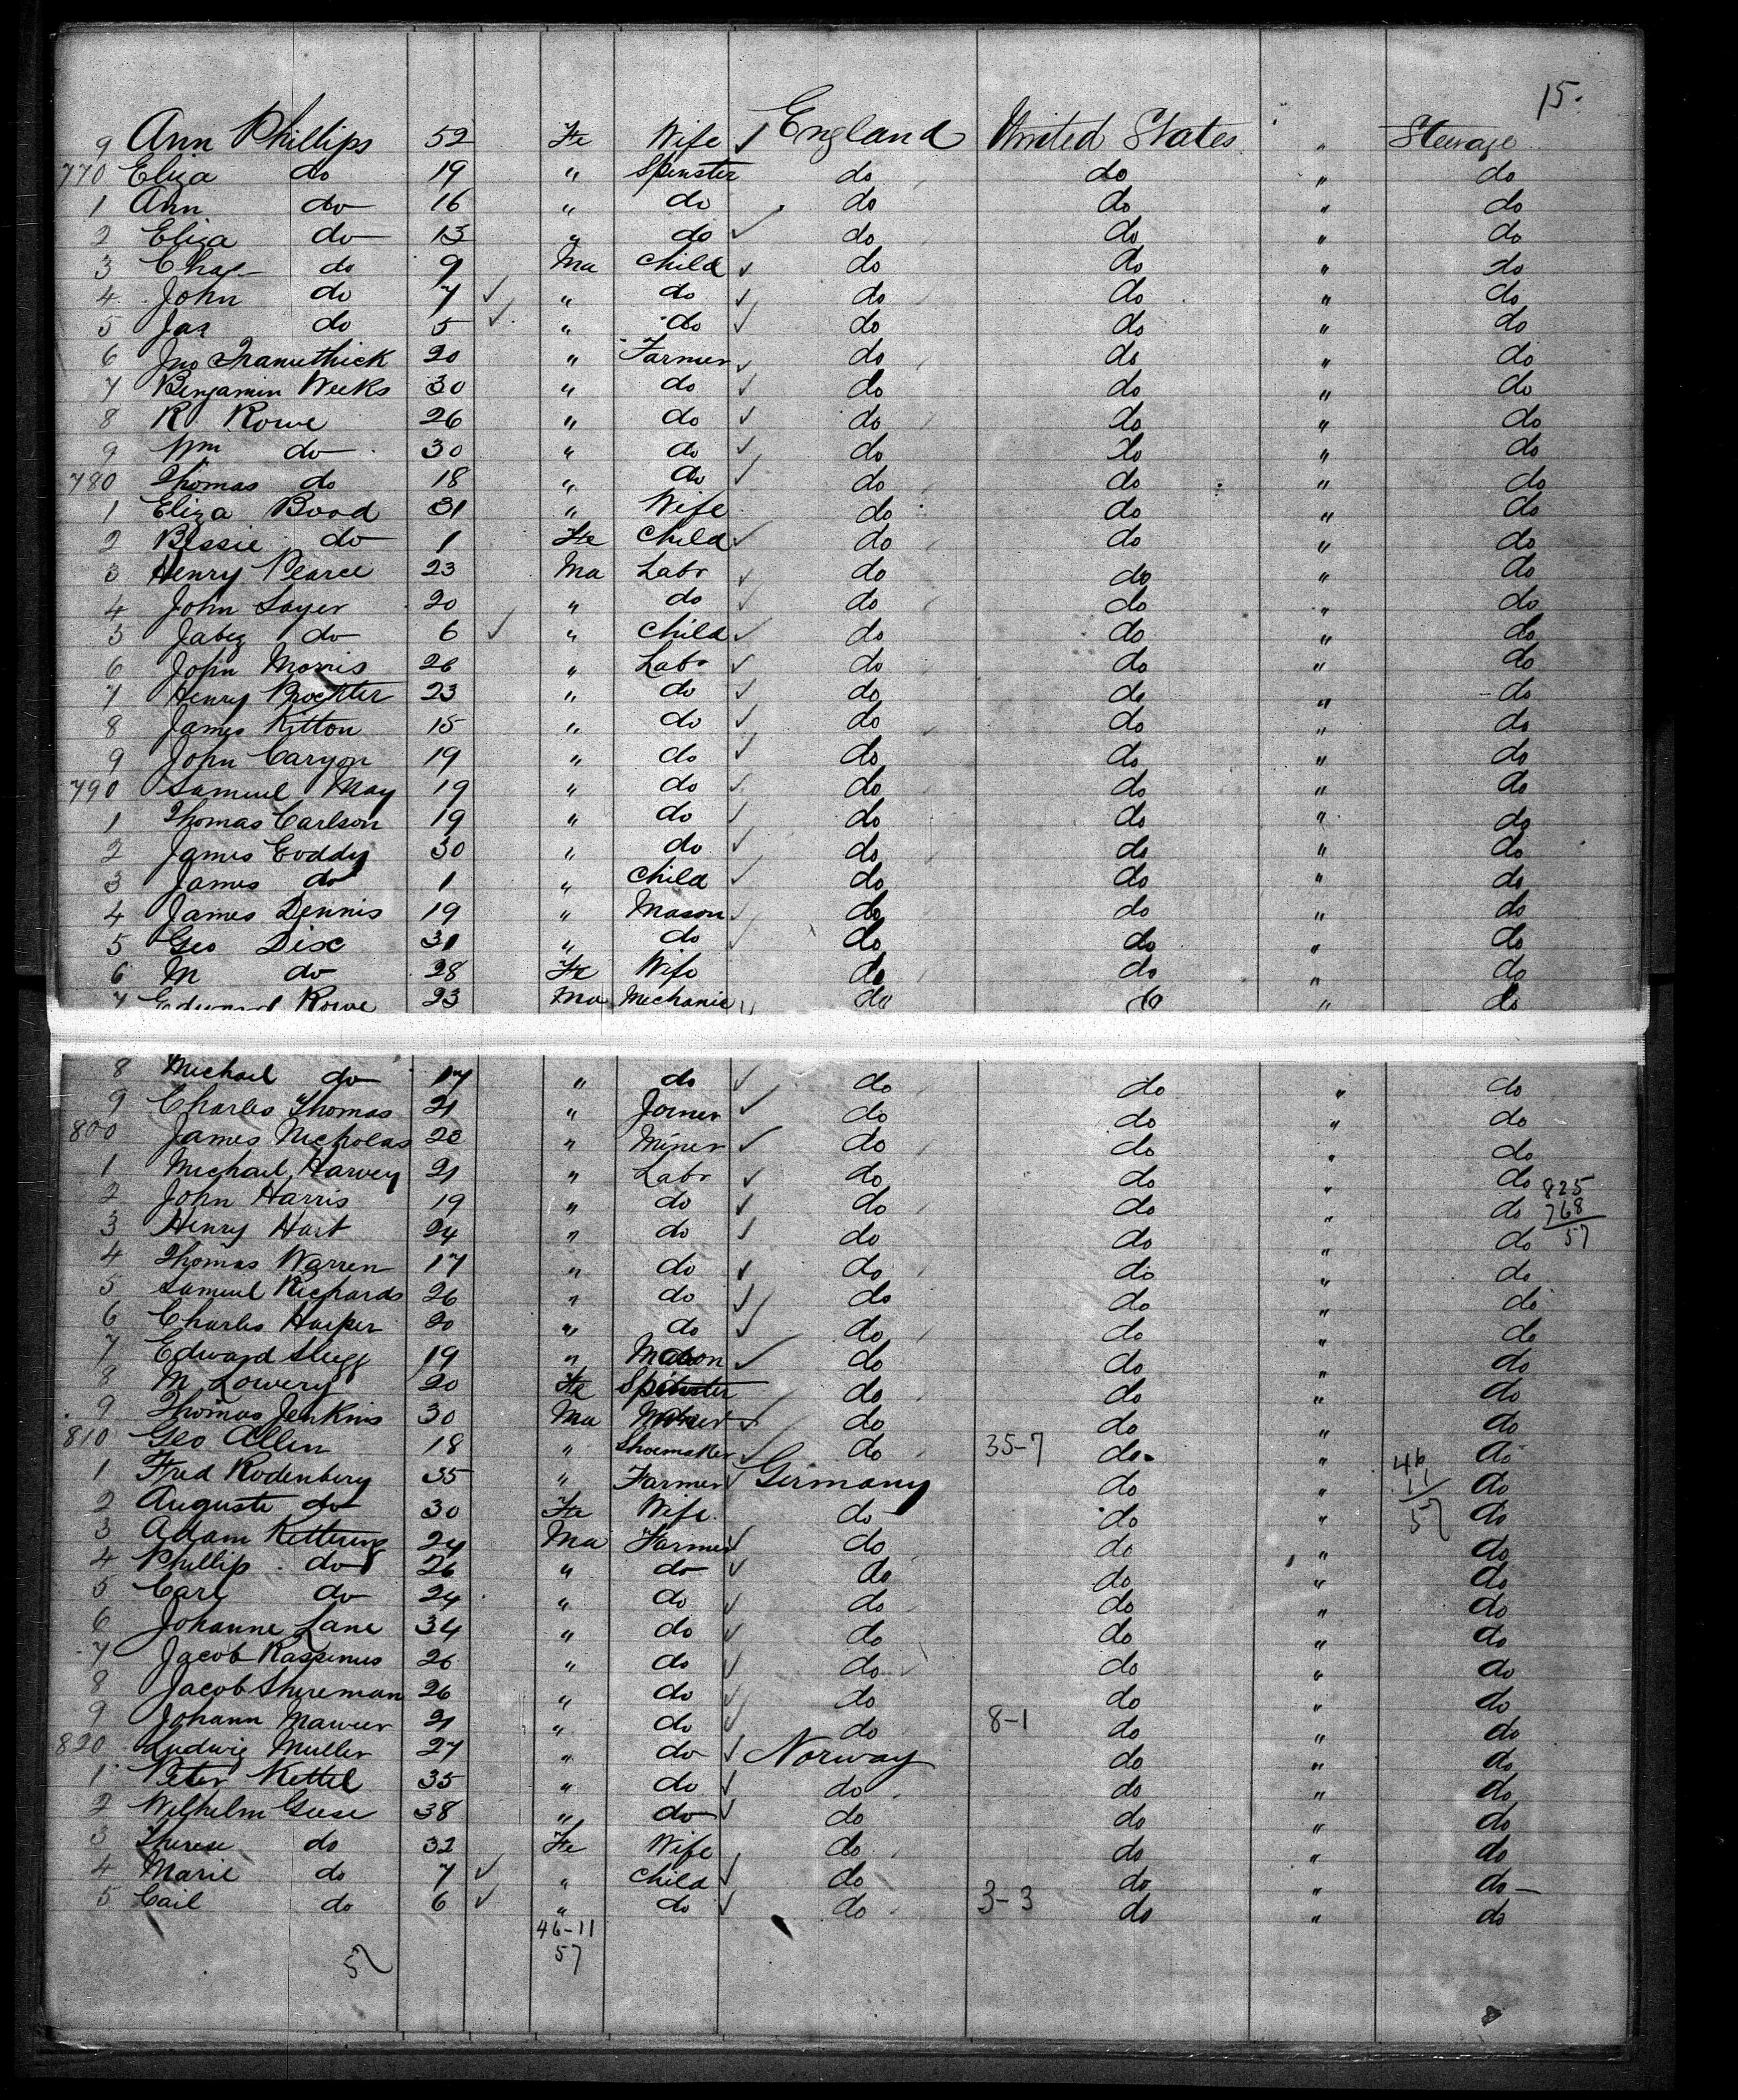 15.
9 Ann Phillips 52 Fe Wife England United States " Steerage
770 Eliza do 19 " Spinster do do " do
1 Ann do 16 " do do do " do
2 Eliza do 13 " do do do " do
3 Chas do 9 Ma Child do do " do
4 John do 7 " do do do " do
5 Jas do 5 " do do do " do
6 Jno 20 " Farmer do do " do
7 Benjamin Weeks 30 " do do do " do
8 R Rowe 26 " do do do " do
9 Wm do 30 " do do do " do
780 Thomas do 18 " do do do " do
1 Eliza Bood 31 " Wife do do " do
2 Bessie do 1 Fe Child do do " do
3 Henry Pearce 23 Ma Labr do do " do
4 John Sayer 20 " do do do " do
5 Jabez do 6 " Child do do " do
6 John Morris 26 " Labr do do " do
7 Henry Prockter 23 " do do do " do
8 James Kitton 15 " do do do " do
9 John Caryon 19 " do do do " do
790 Samuel May 19 " do do do " do
1 Thomas Carlson 19 " do do do " do
2 James Eoddy 30 " do do do " do
3 James do 1 " Child do do " do
4 James Dennis 19 " Mason do do " do
5 Geo Disc 31 " do do do " do
6 M do 28 Fe Wife do do " do
7 Edward Rowe 23 Ma Mechanic do do " do
8 Michael do 17 " do do do " do
9 Charles Thomas 21 " Joiner do do " do
800 James Nicholas 28 " Miner do do " do
1 Michael Harvey 21 " Labr do do " do 825
2 John Harris 19 " do do do " do 768
3 Henry Hart 24 " do do do " do 57
4 Thomas Warren 17 " do do do " do
5 Samuel Richards 26 " do do do " do
6 Charles Harper 20 " do do do " do
7 Edward Slugg 19 " Mason do do " do
8 M Lowery 20 Fe Spinster do do " do
9 Thomas Jenkins 30 Ma Miner do do " do
810 Geo Allen 18 " Shoemaker do 35-7 do " do
1 Fred Rodenberg 35 " Farmer Germany do " 46 do
2 Auguste do 30 Fe Wife do do " 11 do
3 Adam Kettering 24 Ma Farmer do do " 57 do
4 Phillip do 26 " do do do " do
5 Carl do 24 " do do do " do
6 Johanne Lane 34 " do do do " do
7 Jacob Rassinus 26 " do do do " do
8 Jacob Shereman 26 " do do do " do
9 Johann Mawrer 21 " do do 8-1 do " do
820 Ludwig Muller 27 " do Norway do " do
1 Peter Kettel 35 " do do do " do
2 Wilhelm Giese 38 " do do do " do
3 Therese do 32 Fe Wife do do " do
4 Marie do 7 " Child do do " do
5 Cail do 6 " do do 3-3 do " do
46-11
57 57
8